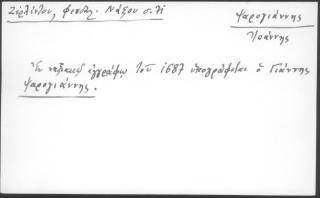 Ζερλέντου, Φεουδ. Νάξου σ. 71
Ψαρογιάννης
Ἰωάννης
Ἐν ναξιακῷ ἐγγράφῳ τοῦ 1687 ὑπογράφεται ὁ Γιάννης
Ψαρογιάννης.